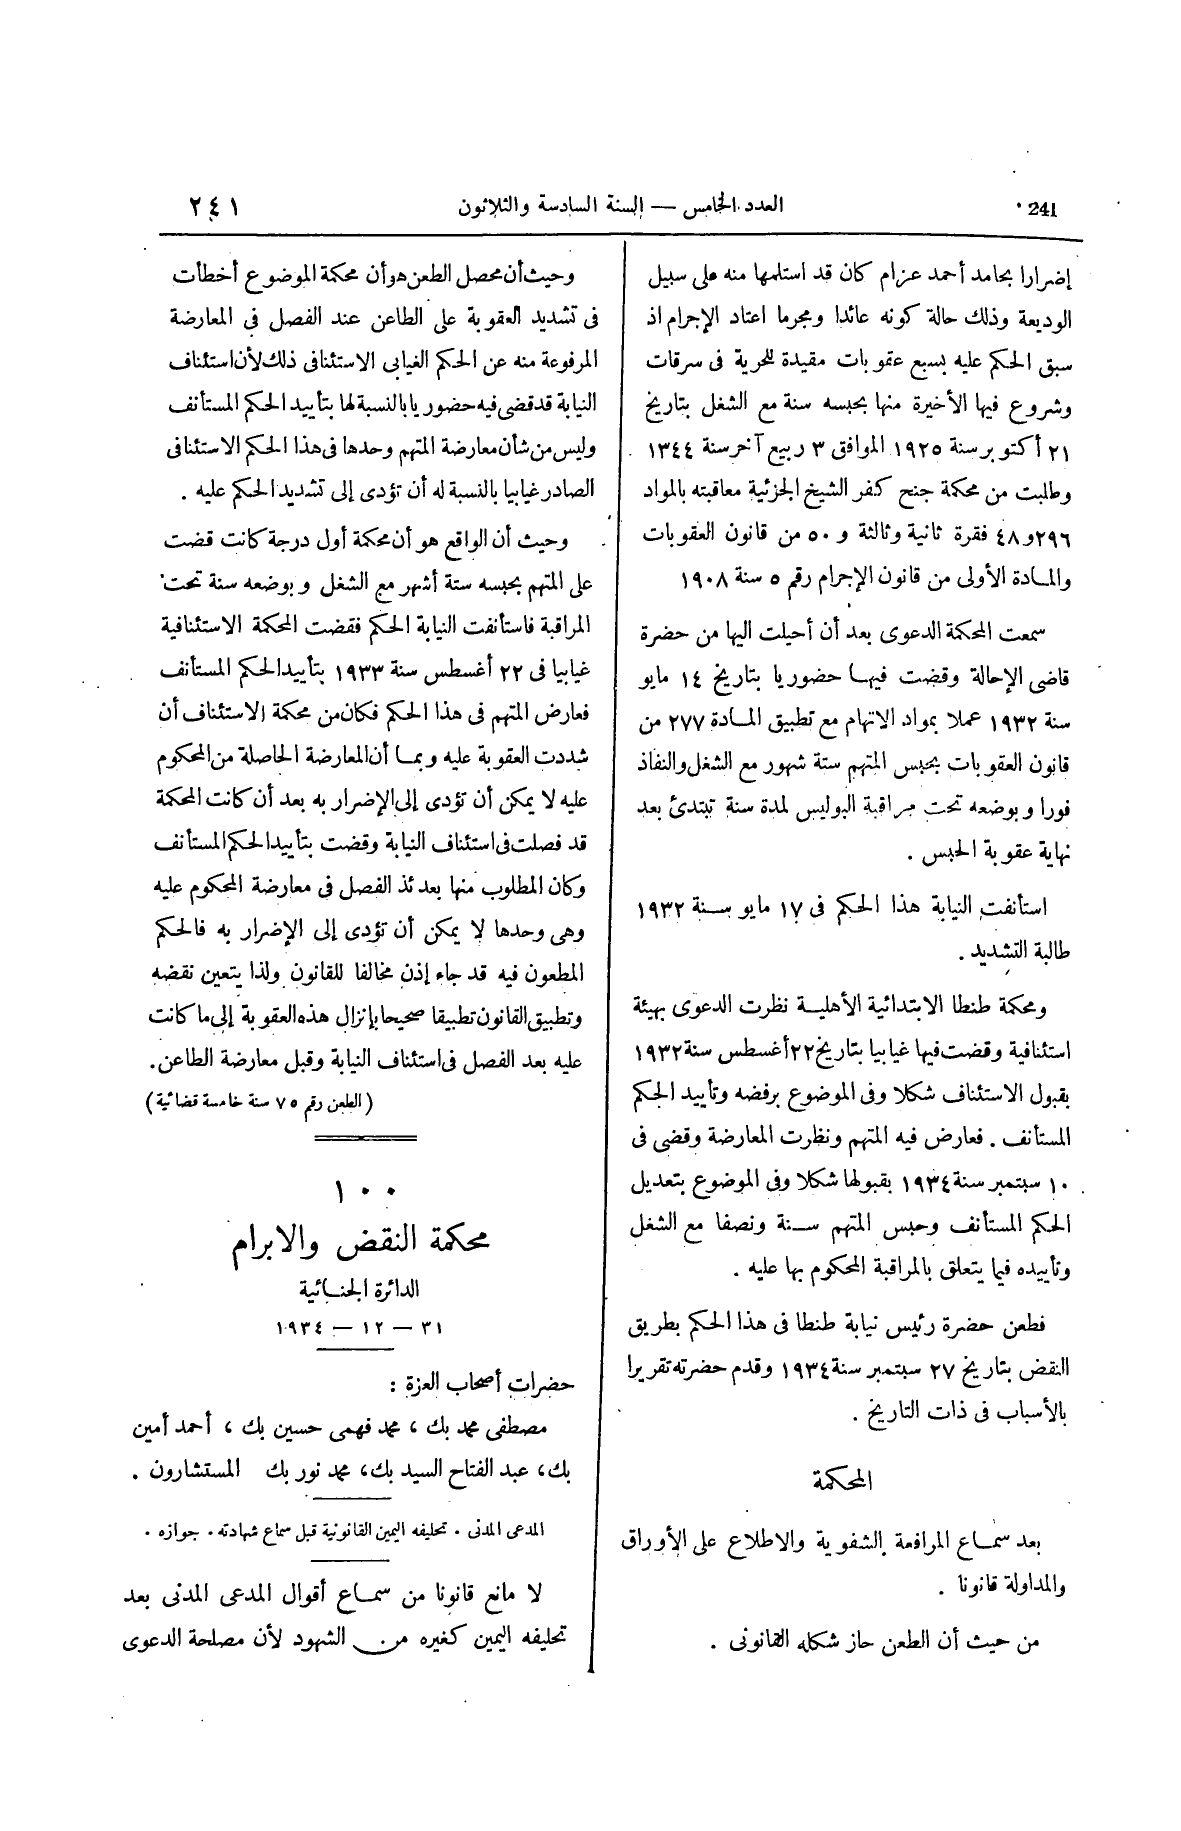 241
العدد الخامس — السنة السادسة والثلاثون
٢٤١
إضرارا بحامد أحمد عزام كان قد استلمها منه على سبيل
الوديعة وذلك حالة كونه عائدا ومجرما اعتاد الإجرام اذ
سبق الحكم عليه بسبع عقوبات مقيدة للحرية فى سرقات
وشروع فيها الأخيرة منها بحبسه سنة مع الشغل بتاريخ
٢١ أكتوبر سنة ١٩٢٥ الموافق ٣ ربيع آخر سنة ١٣٤٤
وطلبت من محكمة جنح كفر الشيخ الجزئية معاقبته بالمواد
٢٩٦و٤٨ فقرة ثانية وثالثة و ٥٠ من قانون العقوبات
والمادة الأولى من قانون الإجرام رقم ٥ سنة ١٩٠٨
سمعت المحكمة الدعوى بعد أن أحيلت اليها من حضرة
قاضى الإحالة وقضت فيها حضوريا بتاريخ ١٤ مايو
سنة ١٩٣٢ عملا بمواد الاتهام مع تطبيق المادة ٢٧٧ من
قانون العقوبات بحبس المتهم ستة شهور مع الشغل والنفاذ
فورا وبوضعه تحت مراقبة البوليس لمدة سنة تبتدئ بعد
نهاية عقوبة الحبس .
استأنفت النيابة هذا الحكم فى ١٧ مايو سنة ١٩٣٢
طالبة التشديد .
ومحكمة طنطا الابتدائية الأهلية نظرت الدعوى بهيئة
استئنافية وقضت فيها غيابيا بتاريخ ٢٢ أغسطس سنة ١٩٣٢
بقبول الاستئناف شكلا وفى الموضوع برفضه وتأييد الحكم
المستأنف . فعارض فيه المتهم ونظرت المعارضة وقضى فى
١٠ سبتمبر سنة ١٩٣٤ بقبولها شكلا وفى الموضوع بتعديل
الحكم المستأنف وحبس المتهم سنة ونصفا مع الشغل
وتأييده فيما يتعلق بالمراقبة المحكوم بها عليه .
فطعن حضرة رئيس نيابة طنطا فى هذا الحكم بطريق
النقض بتاريخ ٢٧ سبتمبر سنة ١٩٣٤ وقدم حضرته تقريرا
بالأسباب فى ذات التاريخ .
المحكمة
بعد سماع المرافعة الشفوية والاطلاع على الأوراق
والمداولة قانونا .
من حيث أن الطعن حاز شكله القانونى .
وحيث أن محصل الطعن هو أن محكمة الموضوع أخطأت
فى تشديد العقوبة على الطاعن عند الفصل فى المعارضة
المرفوعة منه عن الحكم الغيابى الاستئنافى ذلك لأن استئناف
النيابة قد قضى فيه حضوريا بالنسبة لها بتأييد الحكم المستأنف
وليس من شأن معارضة المتهم وحدها فى هذا الحكم الاستئنافى
الصادر غيابيا بالنسبة له أن تؤدى إلى تشديد الحكم عليه .
وحيث أن الواقع هو أن محكمة أول درجة كانت قضت
على المتهم بحبسه ستة أشهر مع الشغل وبوضعه سنة تحت
المراقبة فاستأنفت النيابة الحكم فقضت المحكمة الاستئنافية
غيابيا فى ٢٢ أغسطس سنة ١٩٣٣ بتأييد الحكم المستأنف
فعارض المتهم فى هذا الحكم فكان من محكمة الاستئناف أن
شددت العقوبة عليه وبما أن المعارضة الحاصلة من المحكوم
عليه لا يمكن أن تؤدى إلى الإضرار به بعد أن كانت المحكمة
قد فصلت فى استئناف النيابة وقضت بتأييد الحكم المستأنف
وكان المطلوب منها بعد ئذ الفصل فى معارضة المحكوم عليه
وهى وحدها لا يمكن أن تؤدى إلى الإضرار به فالحكم
المطعون فيه قد جاء إذن مخالفا للقانون ولذا يتعين نقضه
وتطبيق القانون تطبيقا صحيحا بإنزال هذه العقوبة إلى ما كانت
عليه بعد الفصل فى استئناف النيابة وقبل معارضة الطاعن.
( الطعن رقم ٧٥ سنة خامسة قضائية )
١٠٠
محكمة النقض والابرام
الدائرة الجنائية
٣١ — ١٢ — ١٩٣٤
حضرات أصحاب العزة :
مصطفى محمد بك ، محمد فهمى حسين بك ، أحمد أمين
بك، عبد الفتاح السيد بك، محمد نور بك المستشارون .
المدعى المدنى . تحليفه اليمين القانونية قبل سماع شهادته . جوازه .
لا مانع قانونا من سماع أقوال المدعى المدنى بعد
تحليفه اليمين كغيره من الشهود لأن مصلحة الدعوى